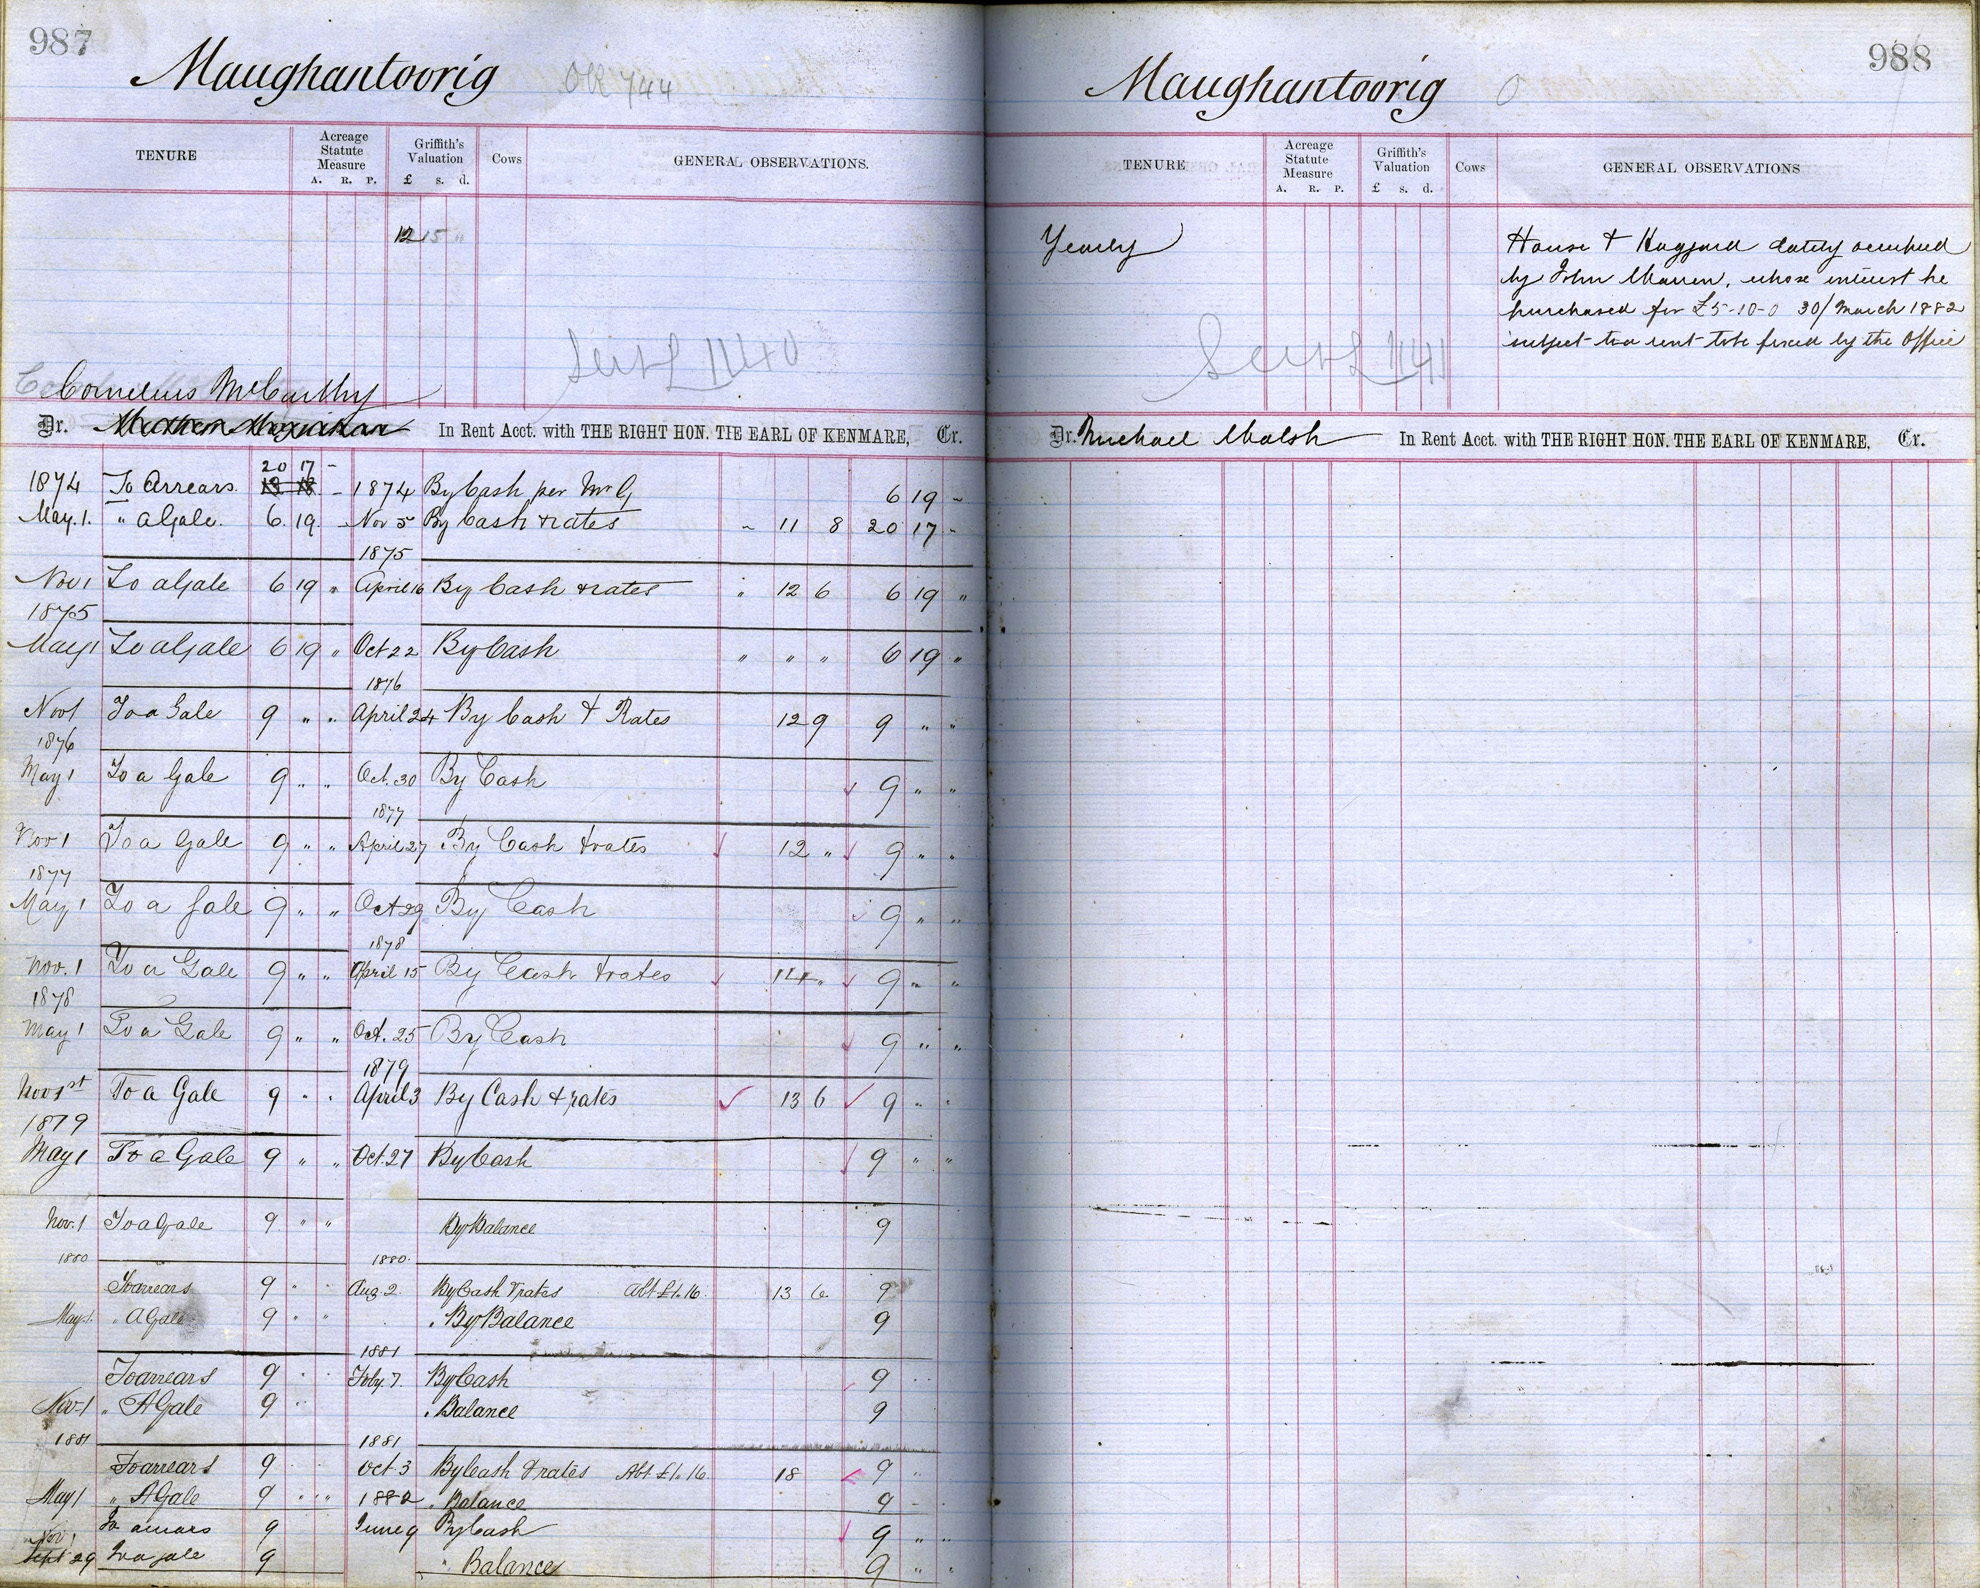 987
Maughantoorig OR 744
TENURE Acreage Statute Measure A. R. P. Griffith's Valuation £ s. d. Cows GENERAL OBSERVATIONS.
12 15 "
Cornelius McCarthy
Dr. In Rent Acct. with THE RIGHT HON. THE EARL OF KENMARE, Cr.
20 17 -
1874 To Arrears. - 1874 By Cash per Mr G 6 19 -
May. 1. " a Gale. 6. 19. - Nov 5 By Cash & rates - 11 8 20 17 -
1875
Nov 1 To a Gale 6 19 " April 16 By Cash & rates " 12 6 6 19 "
1875
May 1 To a Gale 6 19 " Oct 22 By Cash " " " 6 19 "
1876
Nov 1 To a Gale 9 " " April 24 By Cash & Rates 12 9 9 " "
1876
May 1 To a Gale 9 " " Oct. 30 By Cash 9 " "
1877
Nov 1 To a Gale 9 " " April 27 By Cash & rates 12 " 9 " "
1877
May 1 To a Gale 9 " " Oct 29 By Cash 9 " "
1878
Nov. 1 To a Gale 9 " " April 15 By Cash & rates 14 " 9 " "
1878
May 1 To a Gale 9 " " Oct. 25 By Cash 9 " "
1879
Nov 1st To a Gale 9 " " April 3 By Cash & rates 13 6 9 " "
1879
May 1 To a Gale 9 " " Oct. 27 By Cash 9 " "
Nov. 1 To a Gale 9 " " By Balance 9
1880 1880.
To arrears 9 " " Aug. 2. By Cash & rates Abt £1.16. 13 6 9
May 1. " A Gale 9 " " " By Balance 9
1881
To arrears 9 " " Feby. 7. By Cash 9 " "
Nov-1 " A Gale 9 " " " Balance 9
1881 1881
To arrears 9 " " Oct. 3 By Cash & rates Abt £1.16 18 9 "
May 1 " A Gale 9 " " " 1882 " Balance 9 - "
To arrears 9 June 9 By Cash 9 " "
Nov 1
Sept 29 To a gale 9 " Balance 9 " "
988
Maughantoorig
TENURE Acreage Statute Measure A. R. P. Griffith's Valuation £ s. d. Cows GENERAL OBSERVATIONS
Yearly
House & Haggard lately occupied
by John Warren, whose interest he
purchased for £5-10-0 30/March 1882
subject to a rent to be fixed by the Office
Dr. Michael Walsh In Rent Acct. with THE RIGHT HON. THE EARL OF KENMARE, Cr.